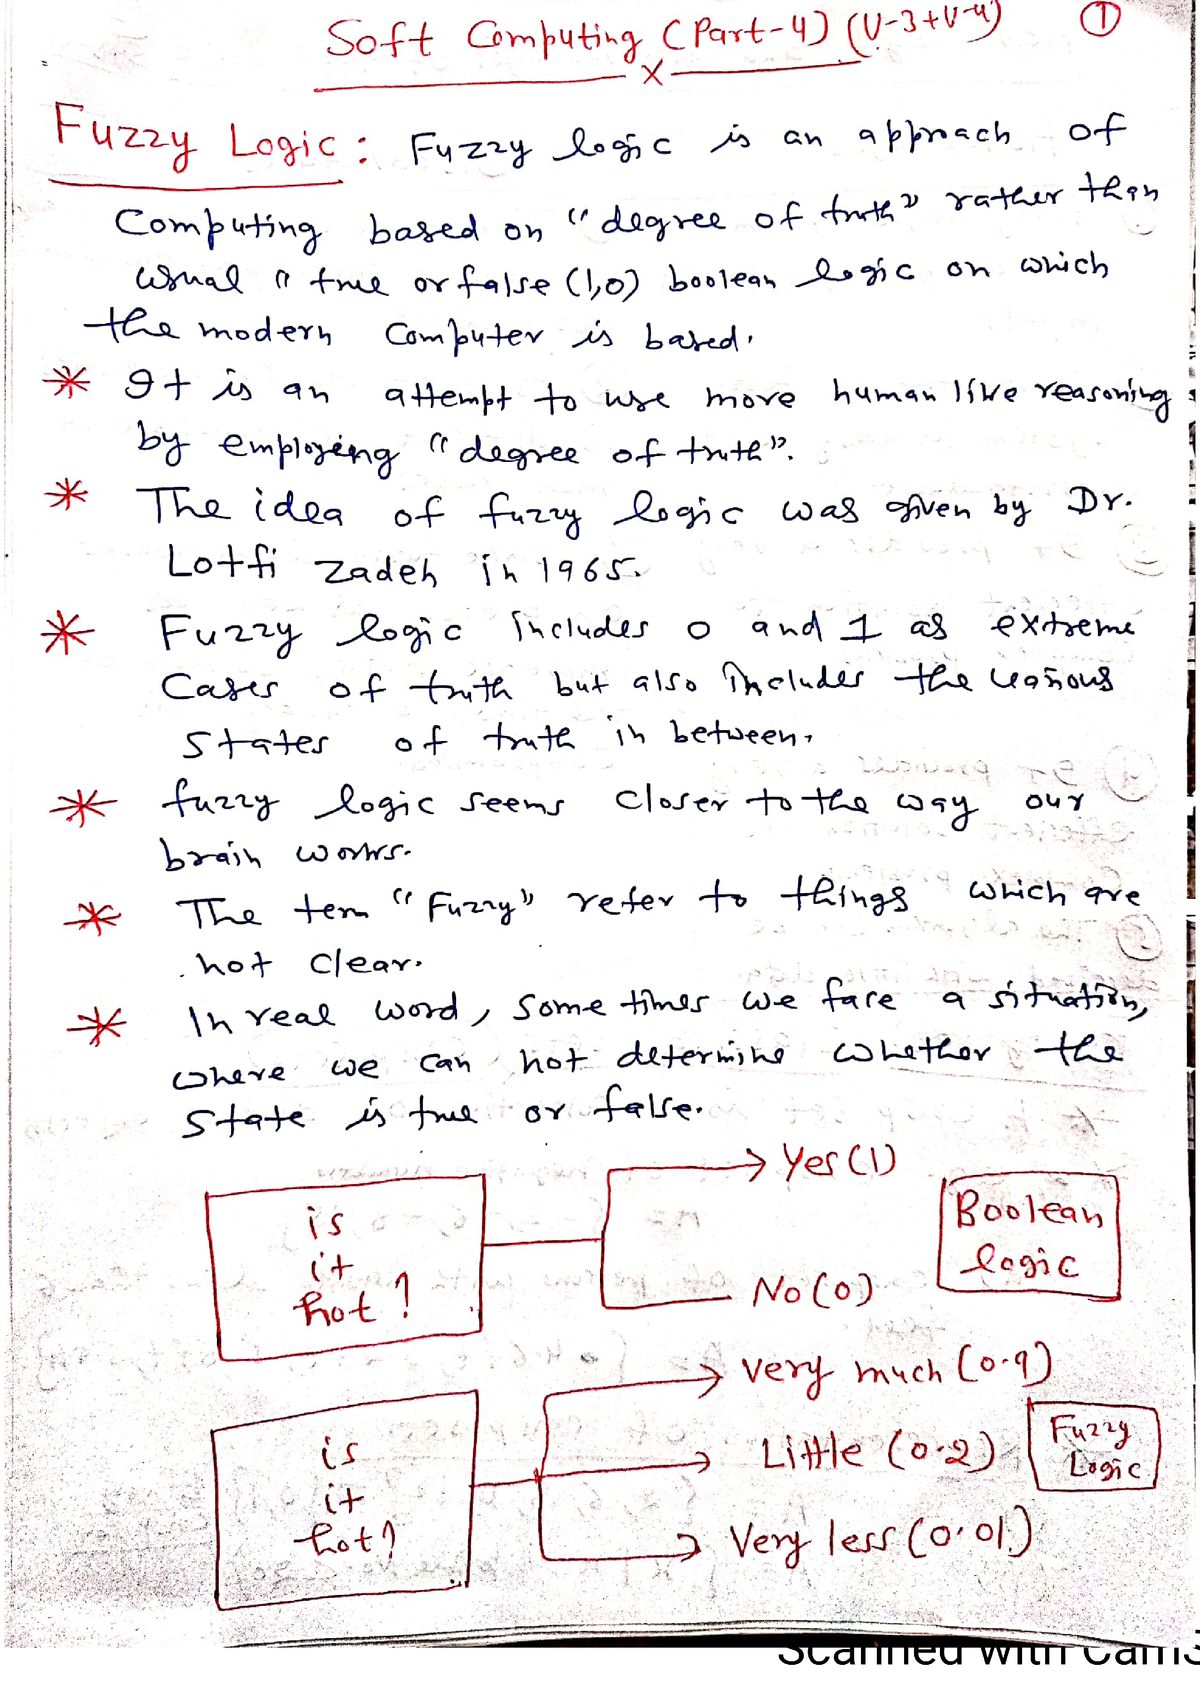 Soft Computing (Part-4) (U-3+U-4) 1
X
Fuzzy Logic: Fuzzy logic is an approach of
Computing based on "degree of truth" rather than
usual " true or false (1,0) boolean logic on which
the modern Computer is based.
* It is an attempt to use more human like reasoning
by employing "degree of truth".
* The idea of fuzzy logic was given by Dr.
Lotfi Zadeh in 1965.
* Fuzzy logic includes 0 and 1 as extreme
Cases of truth but also includes the various
States of truth in between.
* fuzzy logic seems closer to the way our
brain works.
* The term "Fuzzy" refer to things which are
not clear.
* In real word, some times we face a situation,
where we can not determine whether the
state is true or false.
is
it
hot?
Yes (1)
No (0)
Boolean
logic
is
it
hot?
Very much (0.9)
Little (0.2)
Very less (0.01)
Fuzzy
Logic
Scanned with CamS